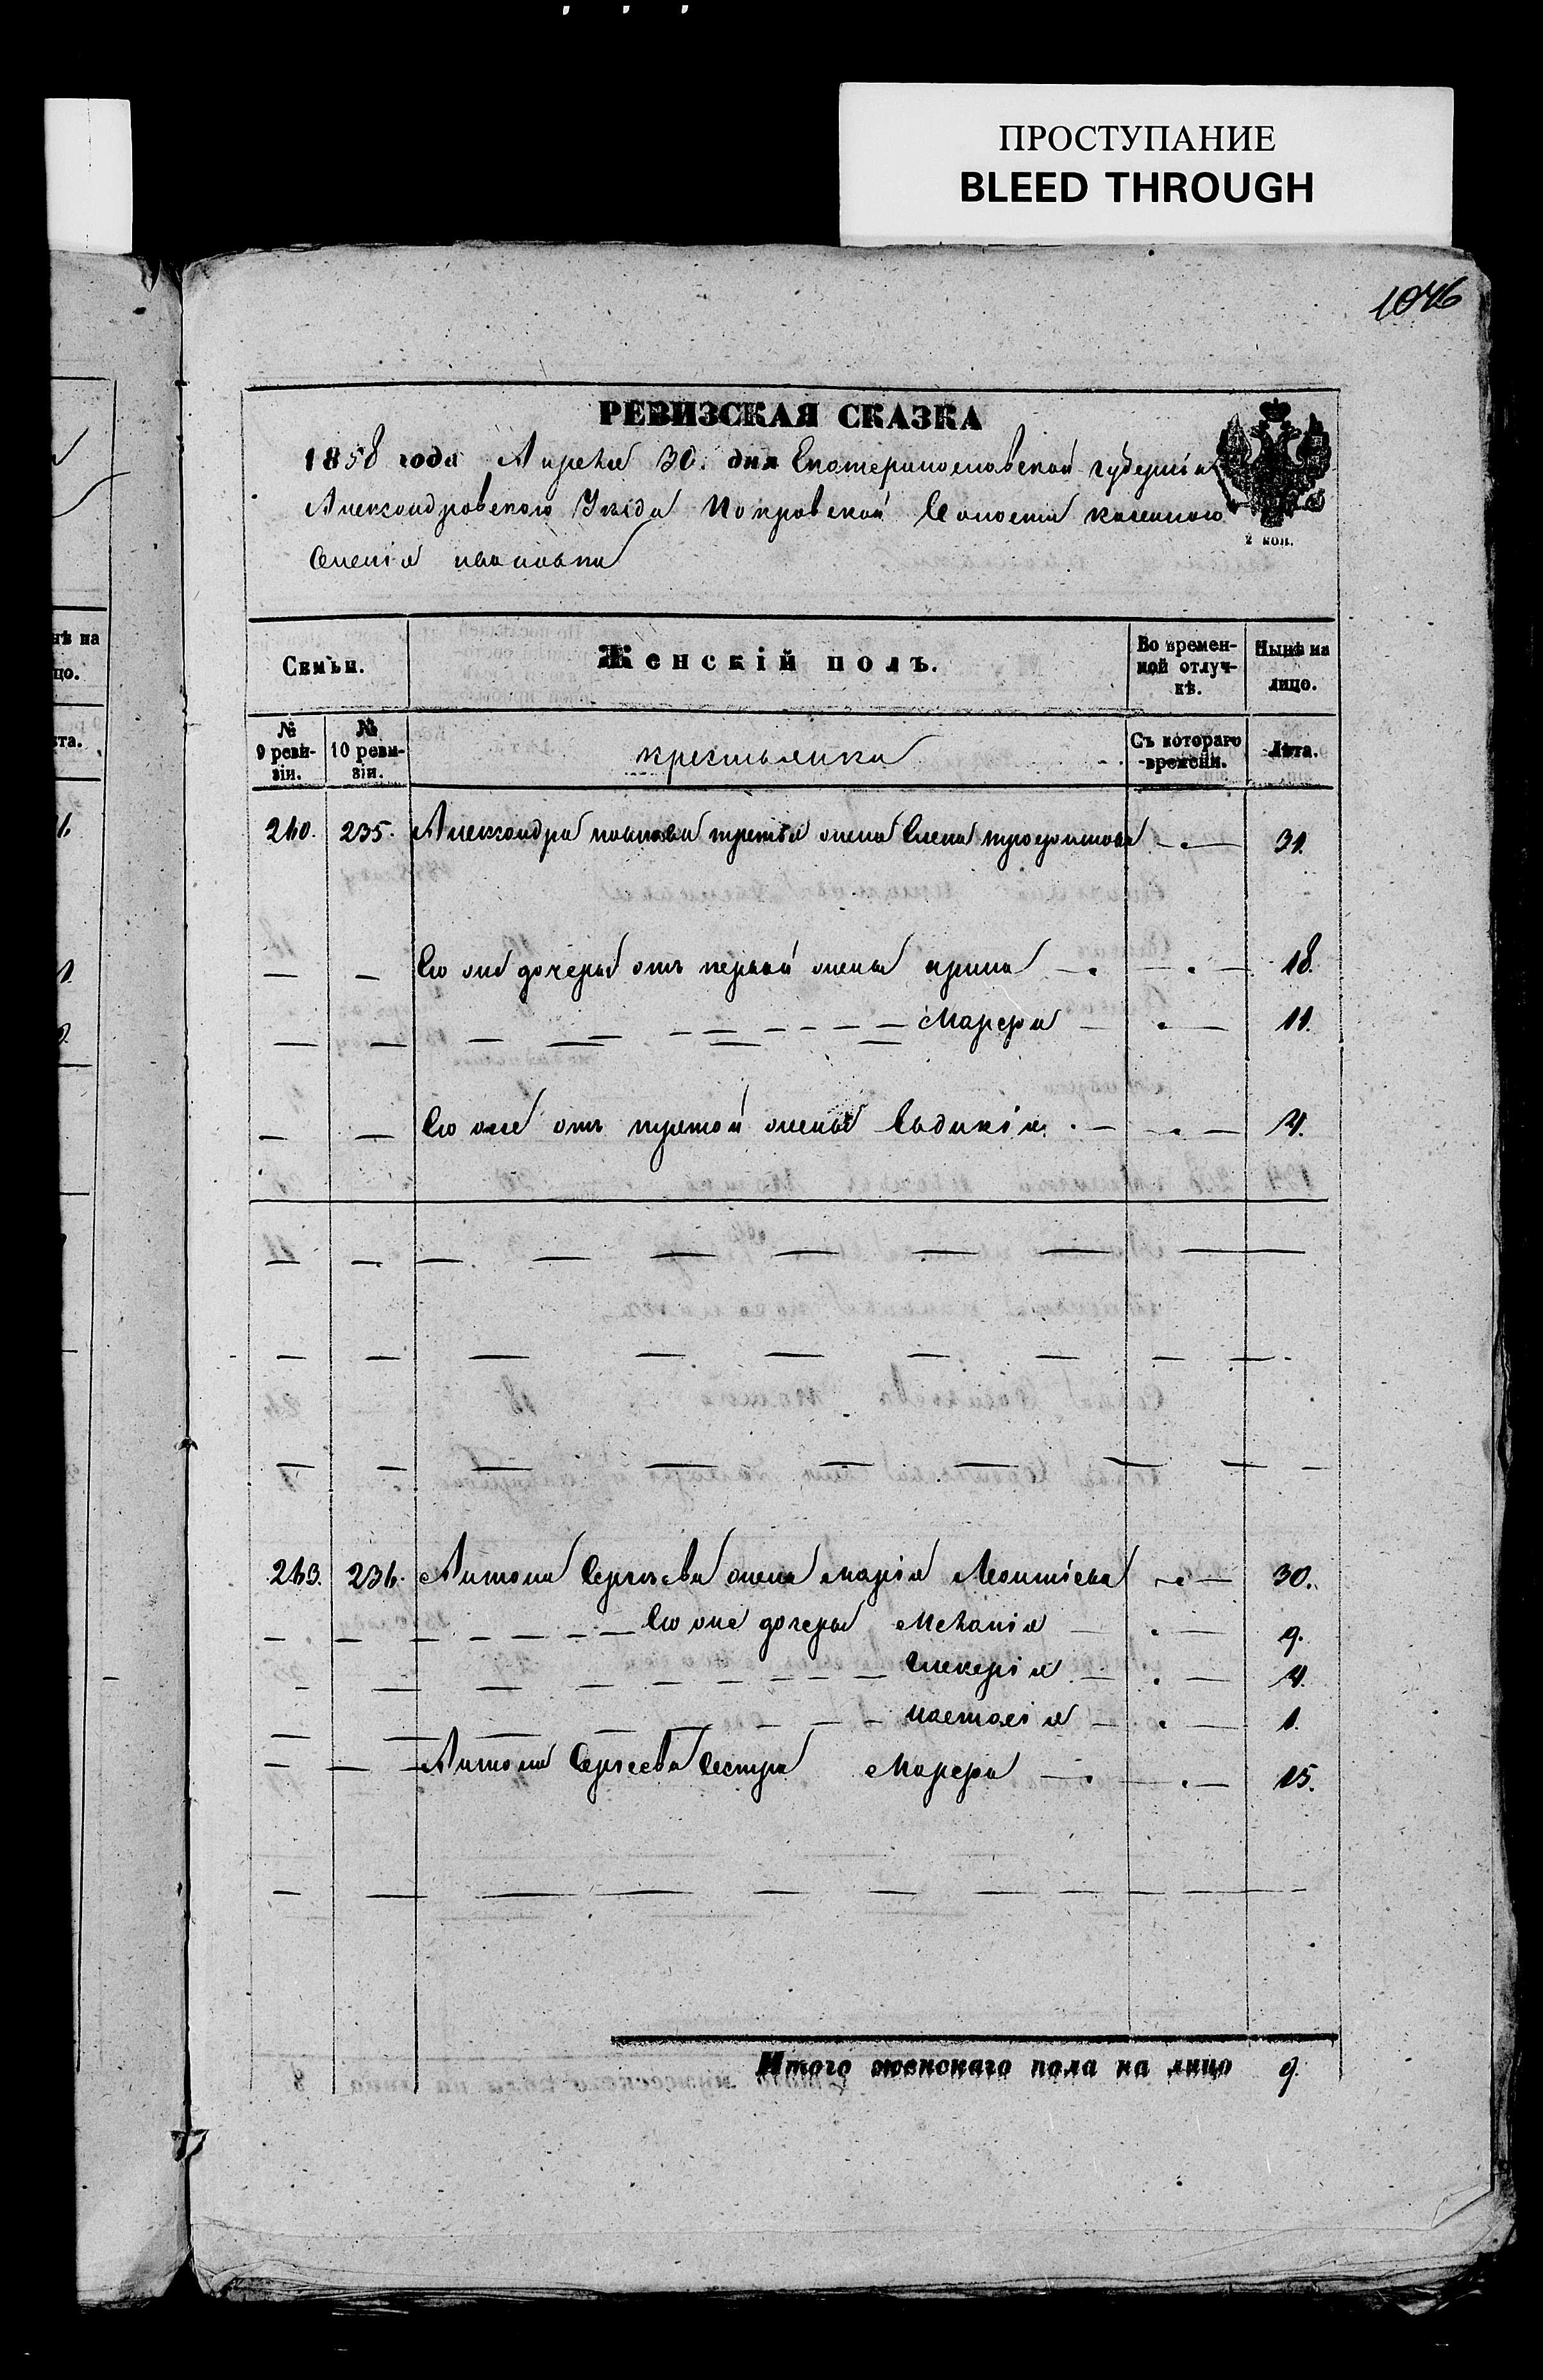 ПРОСТУПАНИЕ
BLEED THROUGH
1046
РЕВИЗСКАЯ СКАЗКА
1858 года Апреля 30. дня Екатеринославской губерніи
Александровского Уѣзда Покровской Волости казенного
Селенія
2 коп.
Семьи.
Женскій полъ.
Во времен-
ной отлуч-
кѣ.
Нынѣ на
лицо.
№
9 реви-
зіи.
№
10 реви-
зіи.
крестьянки
Съ котораго
времени.
Лѣта.
240. 235. Александра третья жена Елена 31.
Его же дочеры отъ первой жены ирина 18.
Марфа 11.
Его же отъ третой жены Евдикія 4.
243. 236. Антона Сергѣева жена марія Леонтіева 30.
Его же дочеры Меланія 9.
гликерія 4.
настасія 1.
Антона Сергеева Сестра Марфа 15.
Итого женскаго пола на лицо 9.
нѣ на
цо.
та.